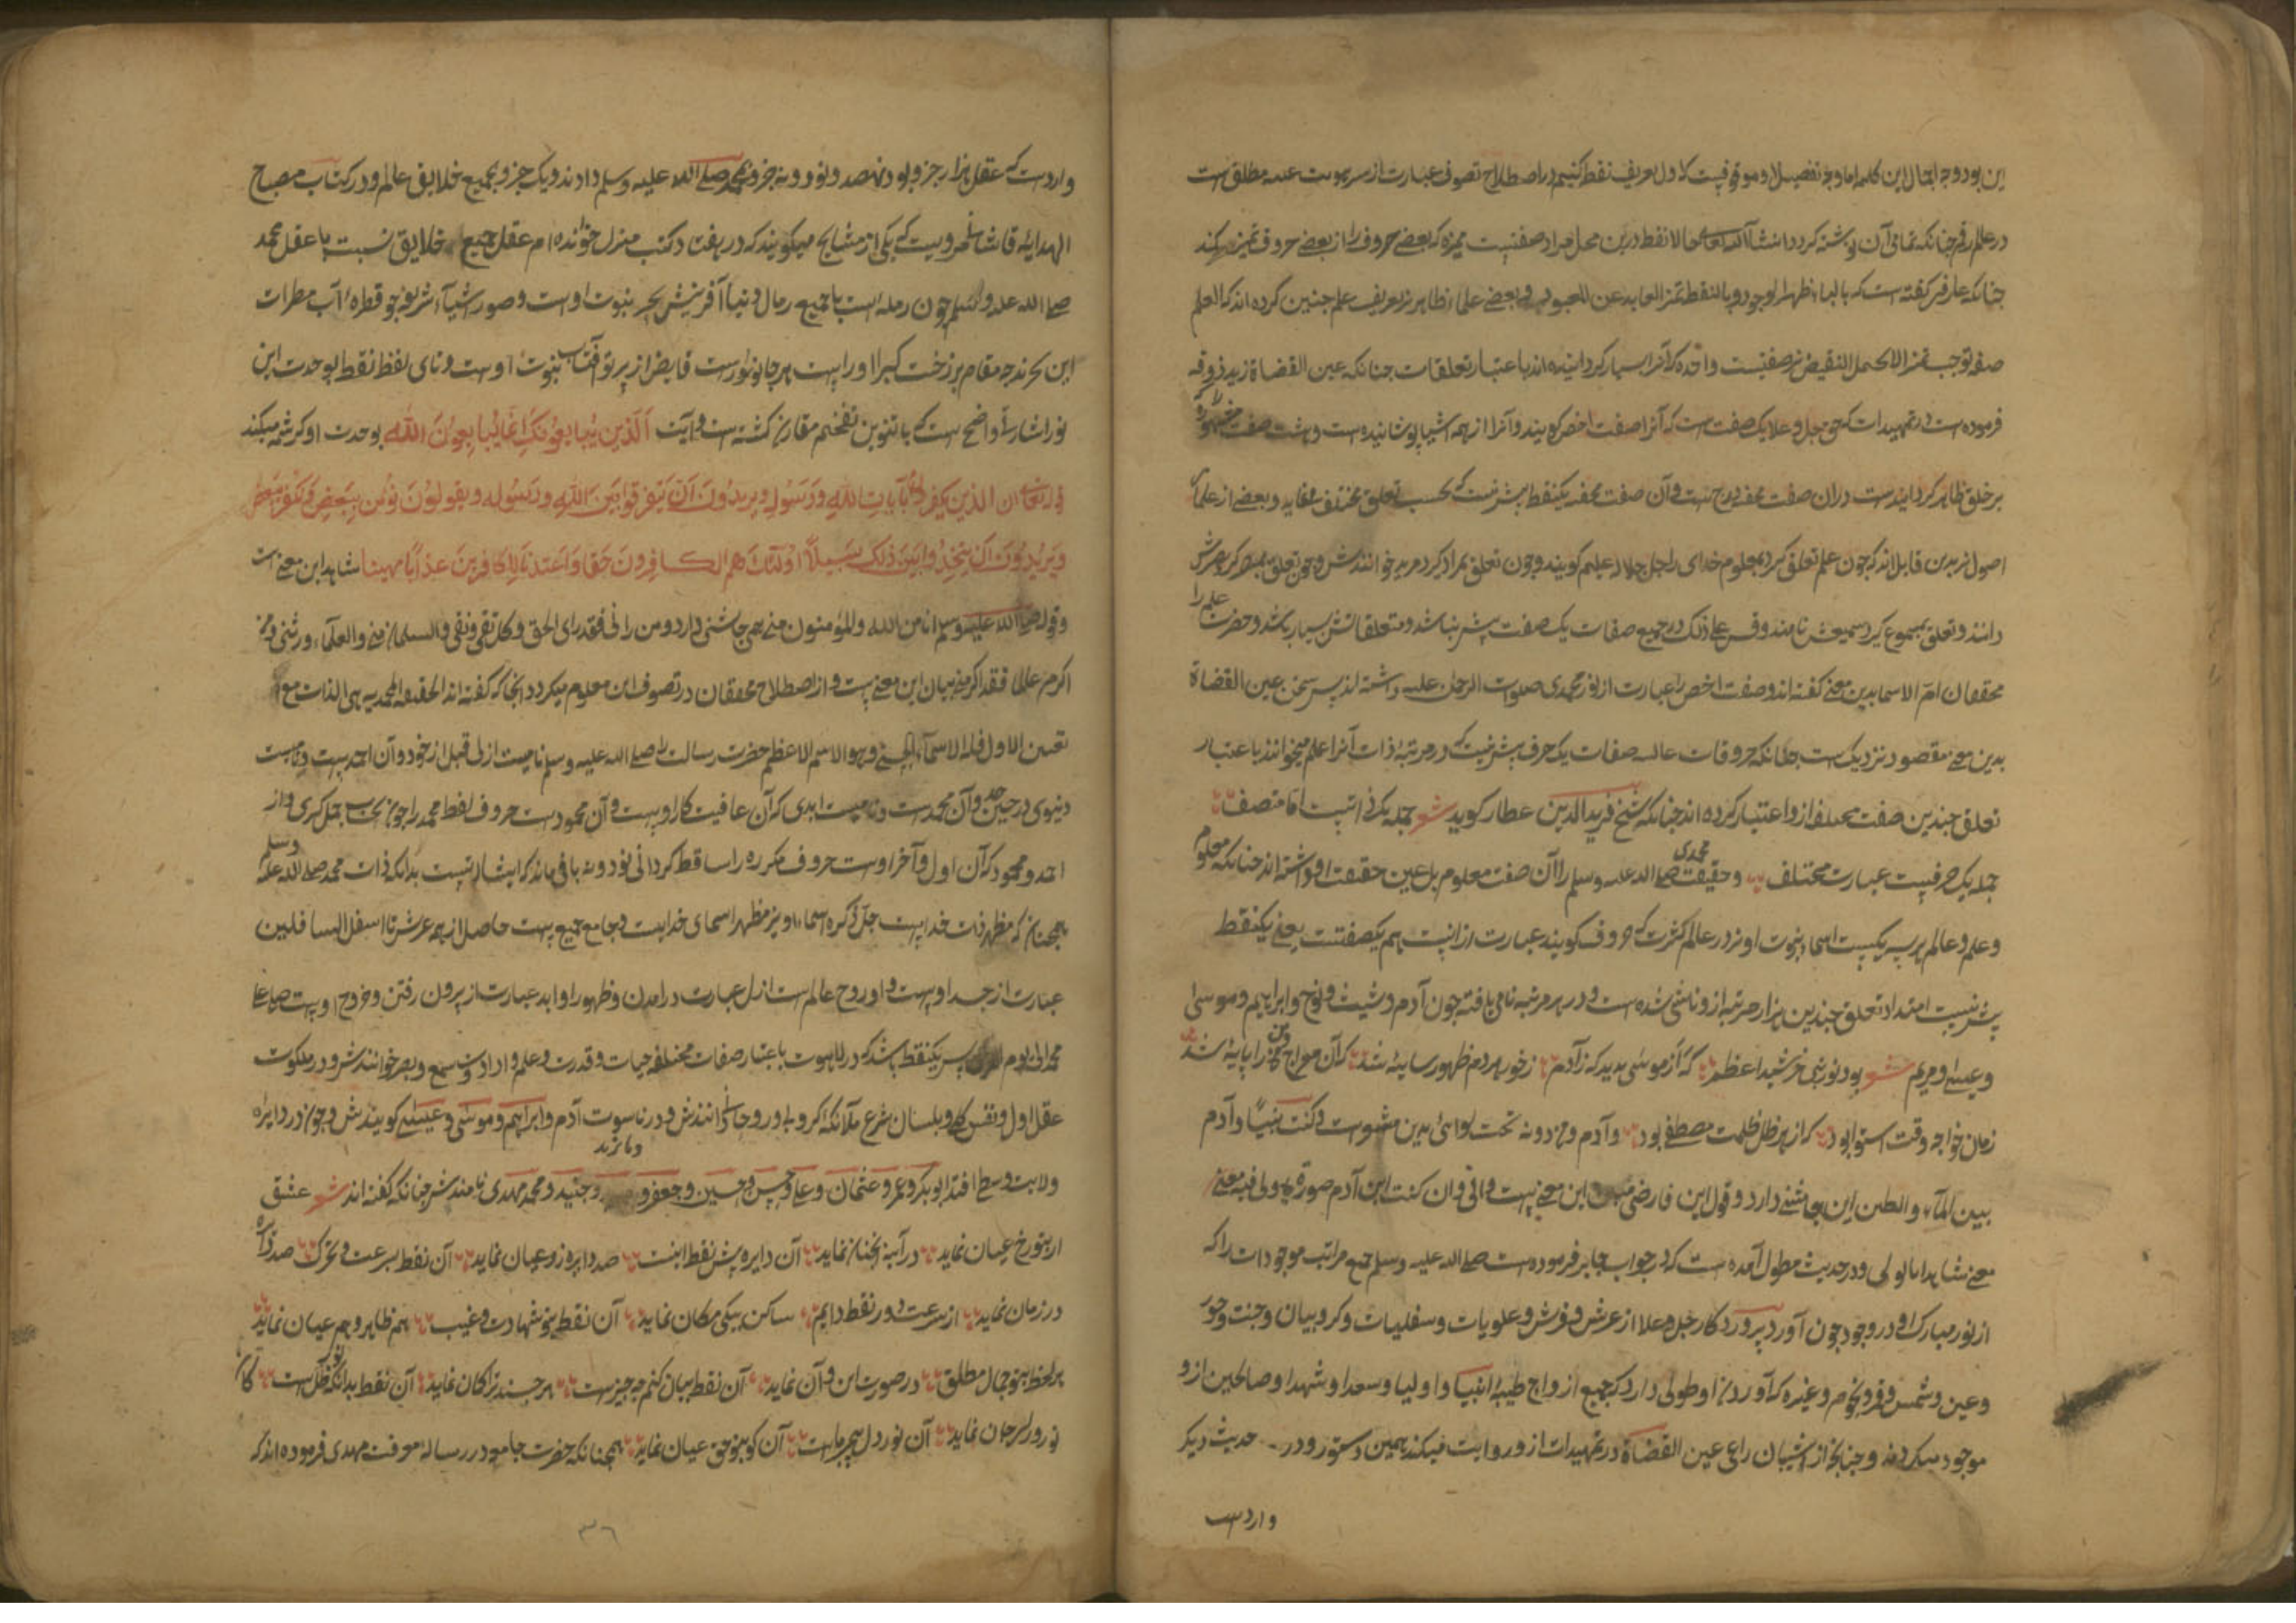 این بود وجه اجمال این کلمه اما وجه تفصیل او موقوفیست کاول تعریف نقطه کنیم در اصطلاح تصوف عبارت از سر هویت غیبیه مطلق است
در علم رقم چنانکه تمامی آن نوشته گردد انشاءالله تعالی حالا نقطه درین محل مراد صفتیست ممیزه که بعضی حروف را از بعضی حروف تمیز میکند
چنانکه عارفی گفته است که بالباء ظهر الوجود و بالنقطة تمیز العابد عن المعبود و بعضی علماء ظاهر نیز تعریف علم چنین کرده اند که العلم
صفة توجب تمییزا لا یحتمل النقیض نیز صفتیست واحده که آنرا بسیار گردانیده اند باعتبار تعلقات چنانکه عین القضاة نیز
فرموده است در تمهیدات که حق جل و علا یک صفت است که آنرا صفت اخص گویند و آنرا از همه اشیا پوشانیده است و هشت صفت
بر خلق ظاهر گردانیده است در آن صفت مخفیه درج است و آن صفت مخفیه یکنقطه بیش نیست که بحسب تعلق مختلف و بعضی از علمای
اصول نیز بدین قایل اند که چون علم تعلق گیرد بمعلوم خدای را جل جلاله علیم گویند و چون تعلق بمراد گیرد مرید خوانندش و چون تعلق بمبصر گیرد بصیرش
دانند و تعلق بمسموع گیرد سمیعش نامند و قس علی ذلک در جمیع صفات یک صفت بیش نباشد و متعلقاتش بسیار باشد و حضرت علم را
محققان ام الاسما بدین معنی گفته اند و صفت اخص را عبارت از نور محمدی صلوات الرحمن علیه داشته اند پس سخن عین القضاة
بدین معنی مقصود نزدیک است بدانکه حروفات عالیه صفات یک حرف بیش نیست که در مرتبه ذات آنرا علم میخوانند باعتبار
تعلق چندین صفت مختلف ازو اعتبار کرده اند چنانکه شیخ فرید الدین عطار گوید شعر جمله یک ذاتست اما متصف
جمله یک حرفیست عبارت مختلف و حقیقت محمدی صلی الله علیه وسلم را آن صفت معلوم بل عین حقیقت او داشته اند چنانکه معلوم
و علم و عالم هر سه یکیست اسماء نبوت او نیز در عالم کثرت که حروف گویند عبارت ازانست هم یکصفتست یعنی یکنقطه
بیش نیست امتداد تعلق چندین هزار مرتبه ازو ناشی شده است و در هر مرتبه نامی یافته چون آدم و شیث و نوح و ابراهیم و موسی
و عیسی و مریم شعر بود نور نبی خورشید اعظم که از موسی پدید که ز آدم ز خور هر دم ظهور سایه شد که آن معراج دین را پایه شد
زمان خواجه وقت استوا بود که از هر ظل ظلمت مصطفی بود و آدم و من دونه تحت لوائی بدین مشعرست و کنت نبیا و آدم
بین الماء و الطین این چاشنی دارد و قول ابن فارض این معنی است وانی وان کنت ابن آدم صورة ولی فیه معنی
معنی شاهد بابوتی و در حدیث مطول آمده است که در جواب جابر فرموده است صلی الله علیه وسلم جمیع مراتب موجودات را که
از نور مبارک او در وجود چون آورد پروردگار جل و علا از عرش و فرش و علویات و سفلیات و کروبیان و جنت و حور
و عین و شمس و قمر و نجوم و غیره که آوردن او طولی دارد که جمیع ازواج طیبه انبیا و اولیا و سعدا و شهدا و صالحین ازو
موجود میگردند و چنانچه از شیبان راعی عین القضاة در تمهیدات ازو روایت میکند همین دستور و در حدیث دیگر
واردست
واردست که عقل هزار جزو بود نهصد و نود و نه جزو بمحمد صلی الله علیه وسلم دادند و یک جزو بجمیع خلایق عالم و در کتاب مصباح
الهدایه قاشانی مرویست که یکی از مشایخ میگویند که در هفتاد کتب منزل خوانده ام عقل جمیع خلایق نسبت با عقل محمد
صلی الله علیه وسلم چون رمله است با جمیع رمال دنیا آفرینش بحر نبوت اوست و صور اشیا اثر نم چو قطره آب مطرات
این بحرند چه مقام برزخیت کبرا اوراست هر جا نوریست فایض از پرتو آفتاب نبوت اوست و نای لفظ نقطه بوحدت این
نور اشارت واضح است که با تنوین تفخیم مقارن گشته است و آیت الذین یبایعونک انما یبایعون الله بوحدت او کرشمه میکند
قوله تعالی ان الذین یکفرون بآیات الله ورسوله ویریدون ان یفرقوا بین الله ورسوله ویقولون نؤمن ببعض ونکفر ببعض
ویریدون ان یتخذوا بین ذلک سبیلا اولئک هم الکافرون حقا واعتدنا للکافرین عذابا مهینا شاهد این معنی است
وقوله صلی الله علیه وسلم انا من الله والمؤمنون منی هم چاشنی دارد و من رانی فقد رای الحق وکل تقی ونقی والسلمان منی والعلماء ورثتی ومن
اکرم عالما فقد اکرمنی بیان این معنی است و از اصطلاح محققان در تصوف این معلوم میگردد آنجا که گفته اند الحقیقة المحمدیه هی الذات مع
تعین الاول فله الاسماء الحسنی وهو الاسم الاعظم حضرت رسالت را صلی الله علیه وسلم نامیست ازلی قبل از خود و آن احمدست و نامیست
دنیوی در حین حیوة و آن محمدست و نامیست ابدی که آن عاقبت کار اوست و آن محمودست حروف لفظ محمد را چون بحساب جمل گیری و از
احمد و محمود که آن اول و آخر اوست حروف مکرره را ساقط گردانی نود و نه باقی ماند که ایشارتیست بدانکه ذات محمد صلی الله علیه وسلم
همچنان که مظهر ذات خداست جل ذکره اسماء او نیز مظهر اسمای خداست و جامع جمیع است حاصل از همه عرش تا اسفل السافلین
عبارت از جسد اوست و او روح عالم است ازل عبارت در آمدن و ظهور او ابد عبارت از برون رفتن و خروج اوست صلی علی
محمد الی یوم پس یکنقطه باشد که در لاهوت باعتبار صفات مختلفه حیات و قدرت و علم و ارادت و سمع و بصر خوانندش و در ملکوت
عقل اول و نفس کل و بلسان شرع ملائکه کروبی و روحانی دانندش و در ناسوت آدم و ابراهیم و موسی و عیسی گویندش و چون در دایره
ولایت وسط افتد ابوبکر و عمر و عثمان و علی و حسن و حسین و جعفر و بایزید و جنید و محمد مهدی نامندش چنانکه گفته اند شعر عشق
ار بتو رخ عیان نماید در آینه جهان نماید آن دایره بیش نقطه اینست صد دایره زو عیان نماید آن نقطه بسرعت و تحرک صد دایره
در زمان نماید از سرعت دور نقطه دایم ساکن بیکی مکان نماید آن نقطه بتو شهادت و غیب هم ظاهر و هم عیان نماید
هر لحظه بتو جمال مطلق در صورت این و آن نماید آن نقطه بیان کنم چه چیزست هر چند ترا گمان نماید آن نقطه بدانکه ظل نورست کان
نور و لی جان نماید آن نور دل پیمبر ماست آن کو بتو حق عیان نماید همچنانکه حضرت جامی در رساله معرفت مهدی فرموده اند که
۳۶